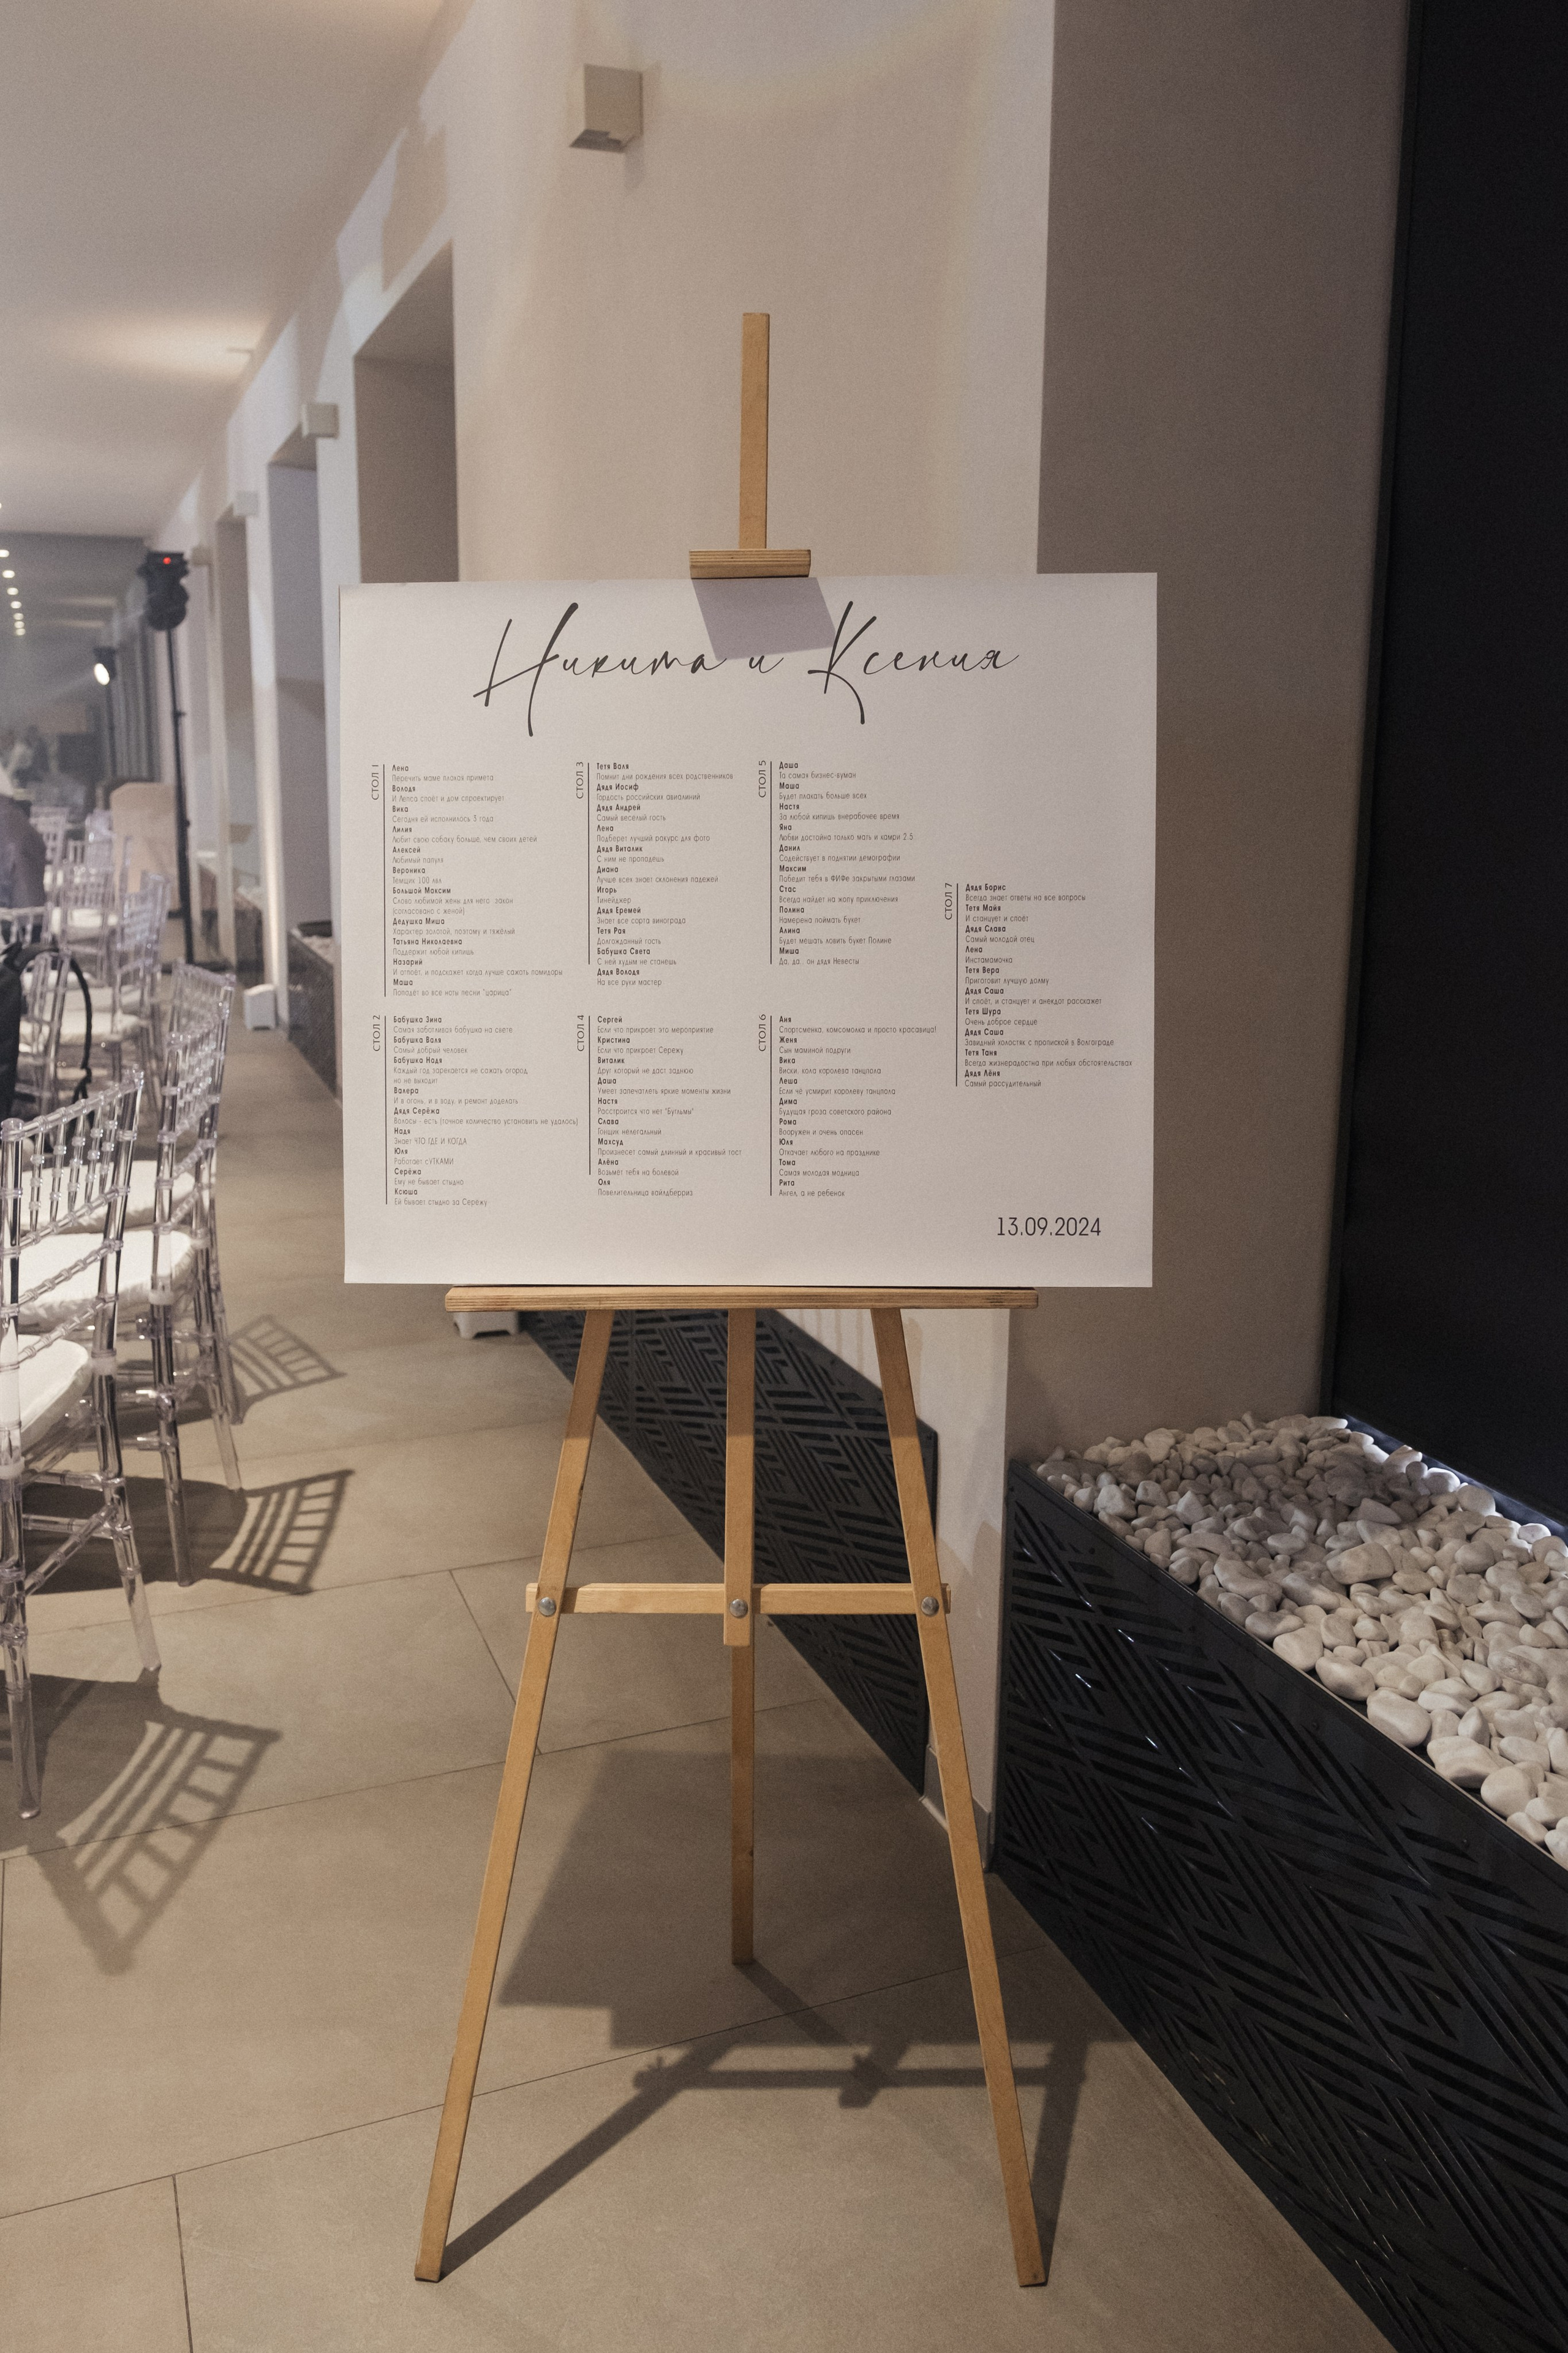 Никита и Ксения
СТОЛ 1
Лена
Перечить маме плохая примета
Володя
И Лепса споёт и дом спроектирует
Вика
Сегодня ей исполнилось 3 года
Лилия
Любит свою собаку больше, чем своих детей
Алексей
Любимый папуля
Вероника
Темщик 100 лвл
Большой Максим
Слово любимой жены для него закон
(согласовано с женой)
Дедушка Миша
Характер золотой, поэтому и тяжёлый
Татьяна Николаевна
Поддержит любой кипишь
Назарий
И отпоёт, и подскажет когда лучше сажать помидоры
Маша
Попадёт во все ноты песни "царица"
СТОЛ 2
Бабушка Зина
Самая заботливая бабушка на свете
Бабушка Валя
Самый добрый человек
Бабушка Надя
Каждый год зарекается не сажать огород,
но не выходит
Валера
И в огонь, и в воду, и ремонт доделать
Дядя Серёжа
Волосы - есть (точное количество установить не удалось)
Надя
Знает ЧТО ГДЕ И КОГДА
Юля
Работает с УТКАМИ
Серёжа
Ему не бывает стыдно
Ксюша
Ей бывает стыдно за Сережу
СТОЛ 3
Тетя Валя
Помнит дни рождения всех родственников
Дядя Иосиф
Гордость российских авиалиний
Дядя Андрей
Самый веселый гость
Лена
Подберет лучший ракурс для фото
Дядя Виталик
С ним не пропадёшь
Диана
Лучше всех знает склонения падежей
Игорь
Тинейджер
Дядя Еремей
Знает все сорта винограда
Тетя Рая
Долгожданный гость
Бабушка Света
С ней худым не станешь
Дядя Володя
На все руки мастер
СТОЛ 4
Сергей
Если что прикроет это мероприятие
Кристина
Если что прикроет Сережу
Виталик
Друг который не даст заднюю
Даша
Умеет запечатлеть яркие моменты жизни
Настя
Расстроится что нет "Бугыльмы"
Слава
Гонщик нелегальный
Махсуд
Произнесет самый длинный и красивый тост
Алёна
Возьмёт тебя на болевой
Оля
Повелительница вайлдберриз
СТОЛ 5
Даша
Та самая бизнес-вуман
Маша
Будет плакать больше всех
Настя
За любой кипишь внерабочее время
Яна
Любви достойна только мать и камри 2.5
Данил
Содействует в поднятии демографии
Максим
Победит тебя в ФИФе закрытыми глазами
Стас
Всегда найдет на жопу приключения
Полина
Намерена поймать букет
Алина
Будет мешать ловить букет Полине
Миша
Да, да, он дядя Невесты
СТОЛ 6
Аня
Спортсменка, комсомолка и просто красавица!
Женя
Сын маминой подруги
Вика
Виски, кола королева танцпола
Леша
Если чё усмирит королеву танцпола
Дима
Будущая гроза советского района
Рома
Вооружен и очень опасен
Юля
Откачает любого на празднике
Тома
Самая молодая модница
Рита
Ангел, а не ребенок
СТОЛ 7
Дядя Борис
Всегда знает ответы на все вопросы
Тетя Майя
И станцует и споёт
Дядя Слава
Самый молодой отец
Лена
Инстамамочка
Тетя Вера
Приготовит лучшую долму
Дядя Саша
И споёт, и станцует и анекдот расскажет
Тетя Шура
Очень доброе сердце
Дядя Саша
Завидный холостяк с пропиской в Волгограде
Тетя Таня
Всегда жизнерадостна при любых обстоятельствах
Дядя Лёня
Самый рассудительный
13.09.2024